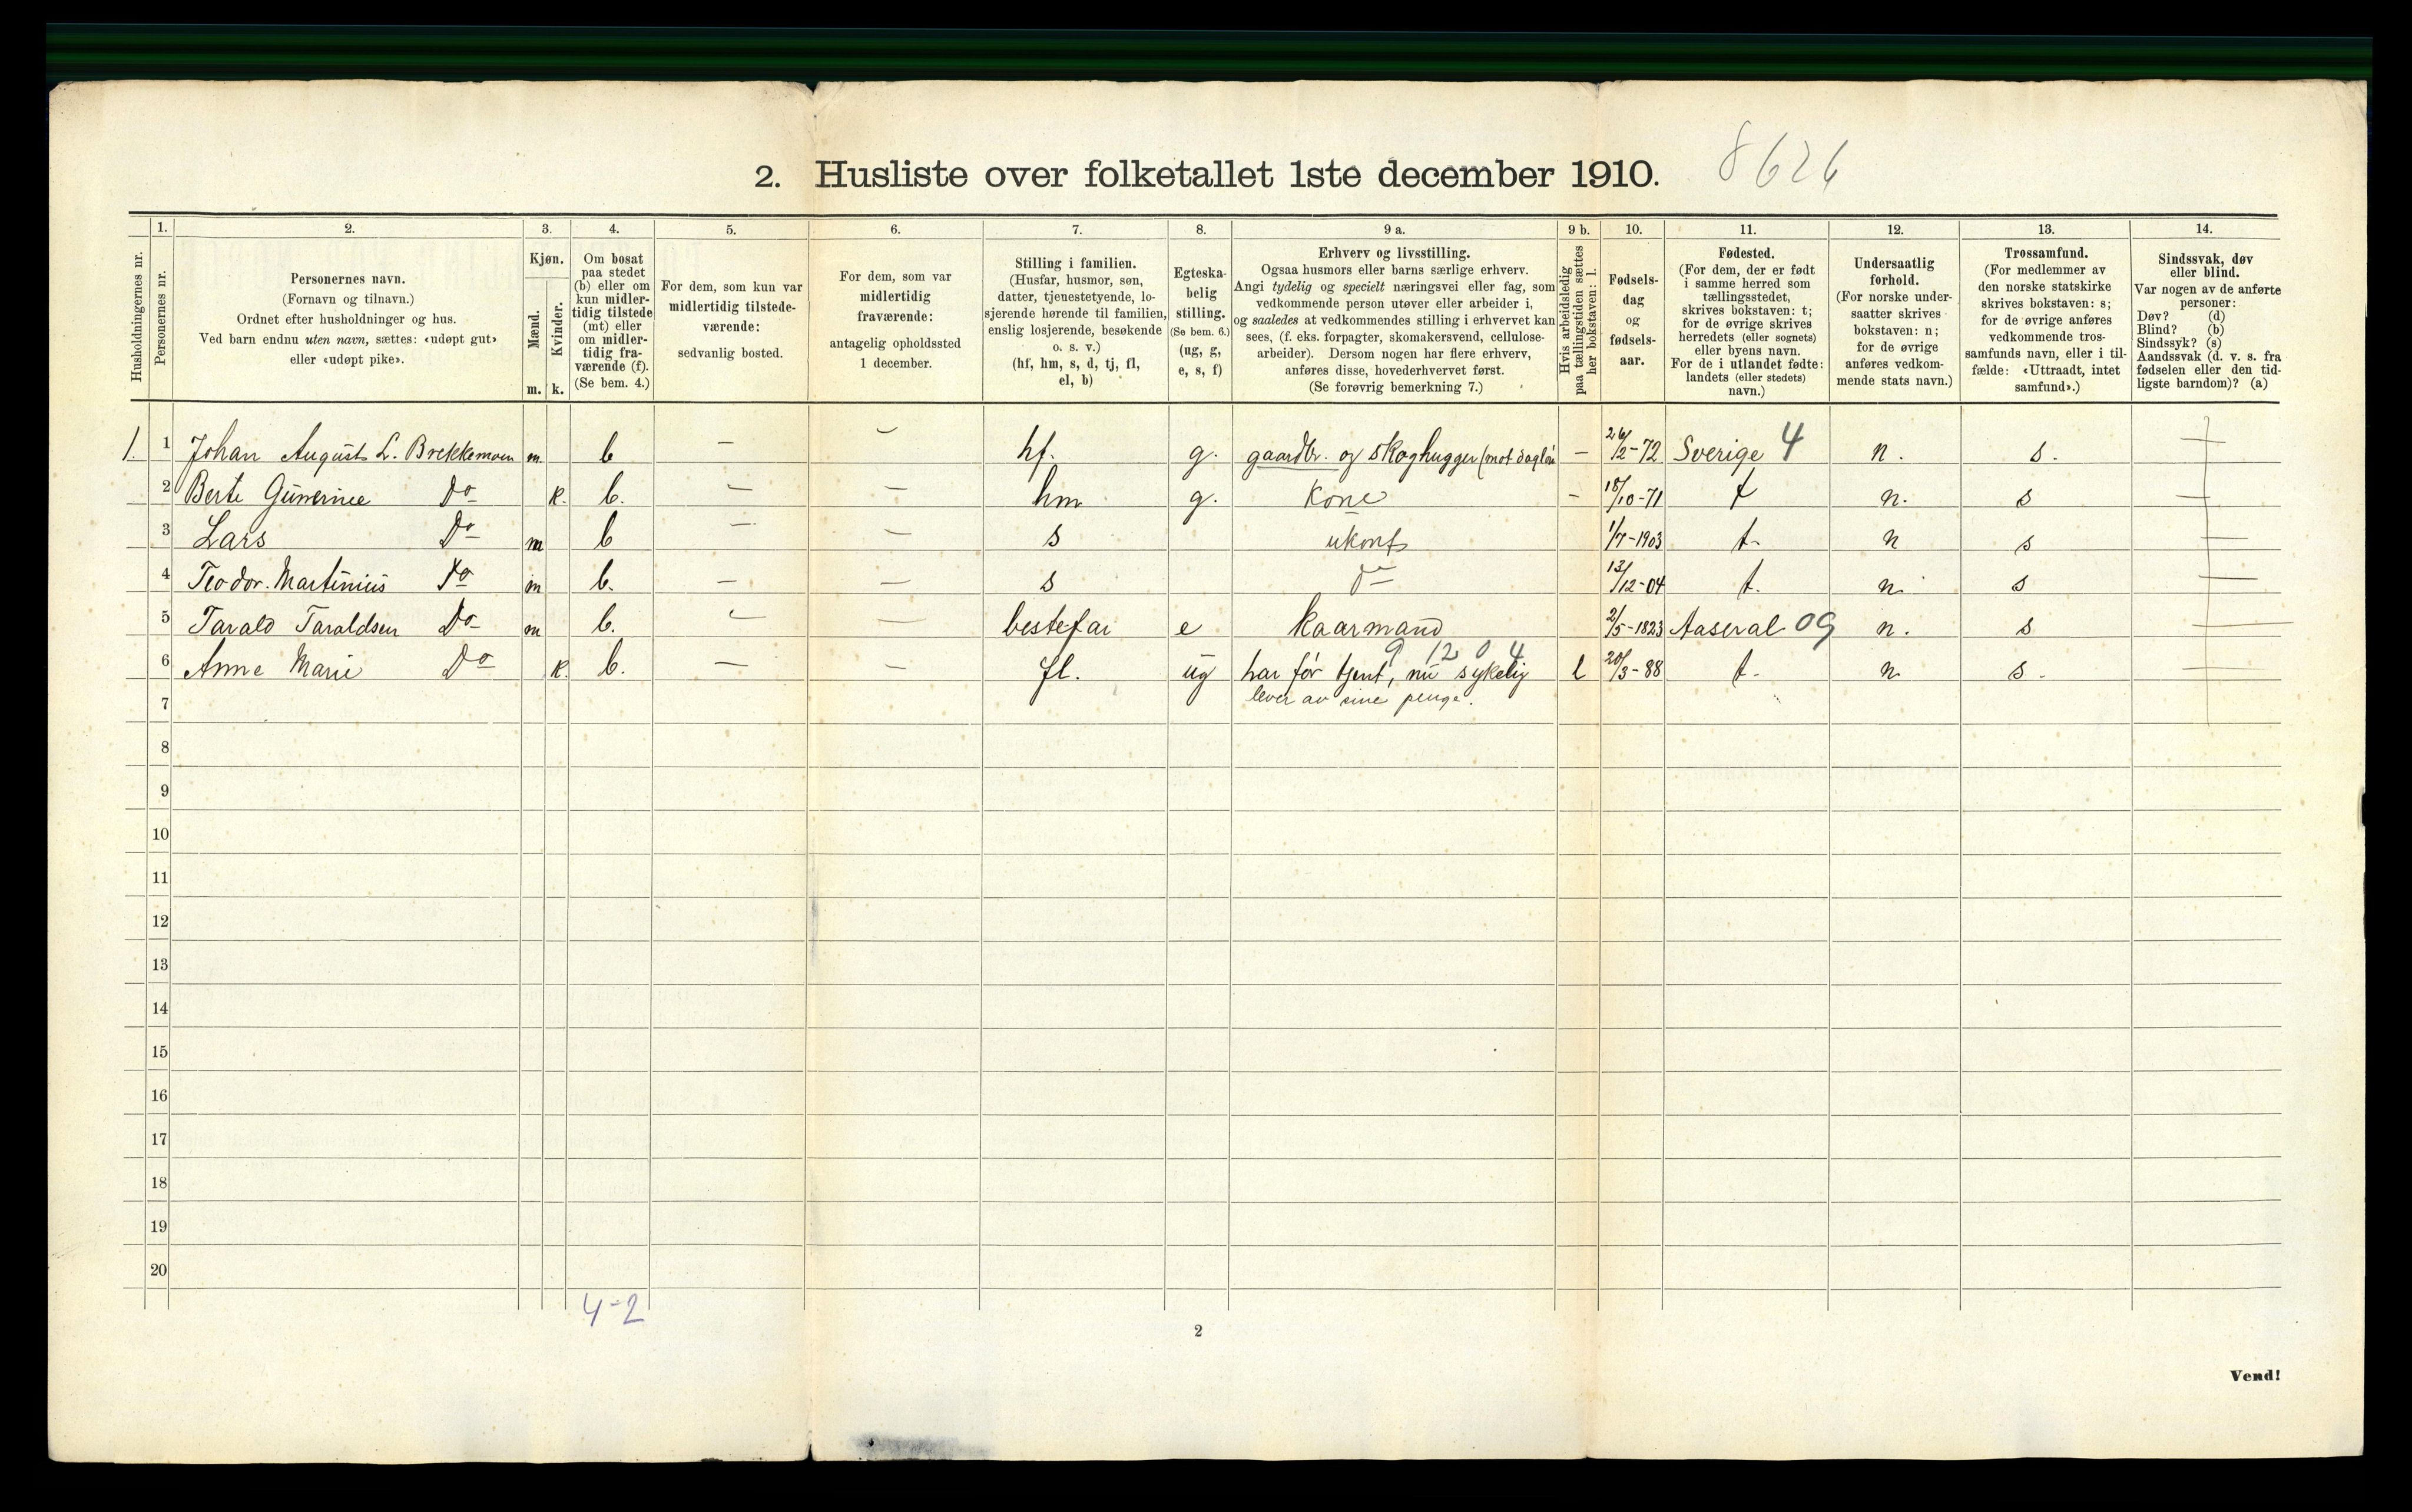 2. Husliste over folketallet 1ste december 1910. 8626
Husholdningernes nr.
1.
Personernes nr.
2.
Personernes navn.
(Fornavn og tilnavn.)
Ordnet efter husholdninger og hus.
Ved barn endnu uten navn, sættes: «udøpt gut»
eller «udøpt pike».
3.
Kjøn.
Mænd.
Kvinder.
m. k.
4.
Om bosat
paa stedet
(b) eller om
kun midler-
tidig tilstede
(mt) eller
om midler-
tidig fra-
værende (f).
(Se bem. 4.)
5.
For dem, som kun var
midlertidig tilstede-
værende:
sedvanlig bosted.
6.
For dem, som var
midlertidig
fraværende:
antagelig opholdssted
1 december.
7.
Stilling i familien.
(Husfar, husmor, søn,
datter, tjenestetyende, lo-
sjerende hørende til familien,
enslig losjerende, besøkende
o. s. v.)
(hf, hm, s, d, tj, fl,
el, b)
8.
Egteska-
belig
stilling.
(Se bem. 6.)
(ug, g,
e, s, f)
9 a.
Erhverv og livsstilling.
Ogsaa husmors eller barns særlige erhverv.
Angi tydelig og specielt næringsvei eller fag, som
vedkommende person utøver eller arbeider i,
og saaledes at vedkommendes stilling i erhvervet kan
sees, (f. eks. forpagter, skomakersvend, cellulose-
arbeider). Dersom nogen har flere erhverv,
anføres disse, hovederhvervet først.
(Se forøvrig bemerkning 7.)
9 b.
Hvis arbeidsledig
paa tællingstiden sættes
her bokstaven: l.
10.
Fødsels-
dag
og
fødsels-
aar.
11.
Fødested.
(For dem, der er født
i samme herred som
tællingsstedet,
skrives bokstaven: t;
for de øvrige skrives
herredets (eller sognets)
eller byens navn.
For de i utlandet fødte:
landets (eller stedets)
navn.)
12.
Undersaatlig
forhold.
(For norske under-
saatter skrives
bokstaven: n;
for de øvrige
anføres vedkom-
mende stats navn.)
13.
Trossamfund.
(For medlemmer av
den norske statskirke
skrives bokstaven: s;
for de øvrige anføres
vedkommende tros-
samfunds navn, eller i til-
fælde: «Uttraadt, intet
samfund».)
14.
Sindssvak, døv
eller blind.
Var nogen av de anførte
personer:
Døv? (d)
Blind? (b)
Sindssyk? (s)
Aandssvak (d. v. s. fra
fødselen eller den tid-
ligste barndom)? (a)
1. 1 Johan August L. Brekkemoen m. b — — hf. g. gaardbr. og skoghugger (mot dagløn — 26/2-72 Sverige 4 n. s. —
2 Berte Gunerine Do k. b. — — hm g. Kone — 18/10-71 t n. s —
3 Lars Do m b — — s ukonf 1/7-1903 t- n s —
4 Teodor. Martinius Do m b. — — s Do 13/12-04 t. n. s —
5 Tarald Taraldsen Do m b. — — bestefar e kaarmand 2/5-1823 Aaseral 09 n. s —
9 12 0 4
6 Anne Marie Do k. b. — — fl. ug har før tjent, nu sykelig l 20/3-88 t. n. s. —
7 lever av sine penge.
8
9
10
11
12
13
14
15
16
17
18
19
20
4-2
2
Vend!